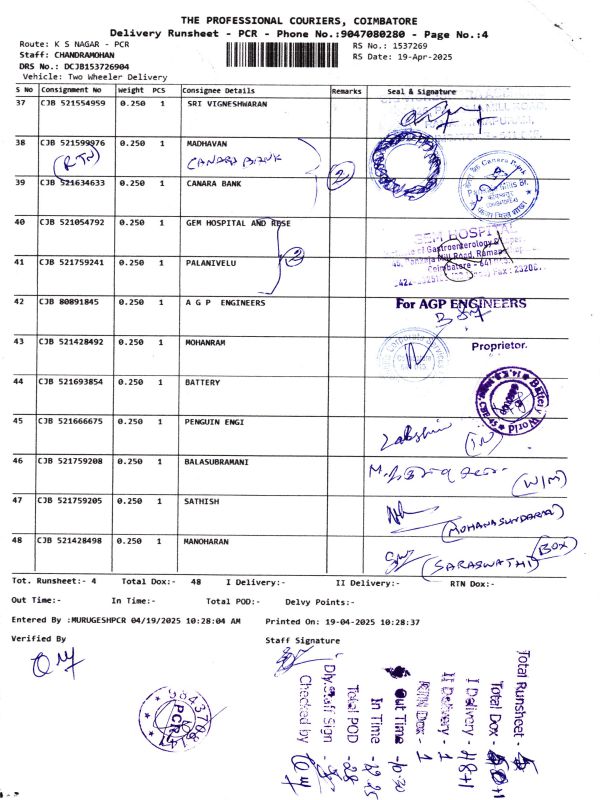 THE PROFESSIONAL COURIERS, COIMBATORE
Delivery Runsheet - PCR - Phone No.:9047080280 - Page No.:4
Route: K S NAGAR - PCR
RS No.: 1537269
Staff: CHANDRAMOHAN
RS Date: 19-Apr-2025
DRS No.: DCJB153726904
Vehicle: Two Wheeler Delivery
S No Consignment No Weight PCS Consignee Details Remarks Seal & Signature
37 CJB 521554959 0.250 1 SRI VIGNESHWARAN
38 CJB 521599976 0.250 1 MADHAVAN
(RTN) CANARA BANK
2
39 CJB 521634633 0.250 1 CANARA BANK
Canara Bank
40 CJB 521054792 0.250 1 GEM HOSPITAL AND RESE
GEM HOSPITAL
Gastroenterology
Mill Road, Raman
2
41 CJB 521759241 0.250 1 PALANIVELU
Coimbatore - 641
42 CJB 80891845 0.250 1 A G P ENGINEERS
For AGP ENGINEERS
43 CJB 521428492 0.250 1 MOHANRAM
Proprietor.
44 CJB 521693854 0.250 1 BATTERY
Battery World
45 CJB 521666675 0.250 1 PENGUIN ENGI
Lakshmi
46 CJB 521759208 0.250 1 BALASUBRAMANI
(W/M)
47 CJB 521759205 0.250 1 SATHISH
(MOHANASUNDARAM)
48 CJB 521428498 0.250 1 MANOHARAN
(SARASWATHI) (BOX)
Tot. Runsheet:- 4 Total Dox:- 48 I Delivery:- II Delivery:- RTN Dox:-
Out Time:- In Time:- Total POD:- Delvy Points:-
Entered By :MURUGESHPCR 04/19/2025 10:28:04 AM Printed On: 19-04-2025 10:28:37
Verified By
Staff Signature
PCR
Total Runsheet -
Total Dox -
I Delivery - 48+1
II Delivery - 1
RTN Dox - 1
Out Time - 10.30
In Time - 12.25
Total POD - 28
Dly. Staff Sign -
Checked by